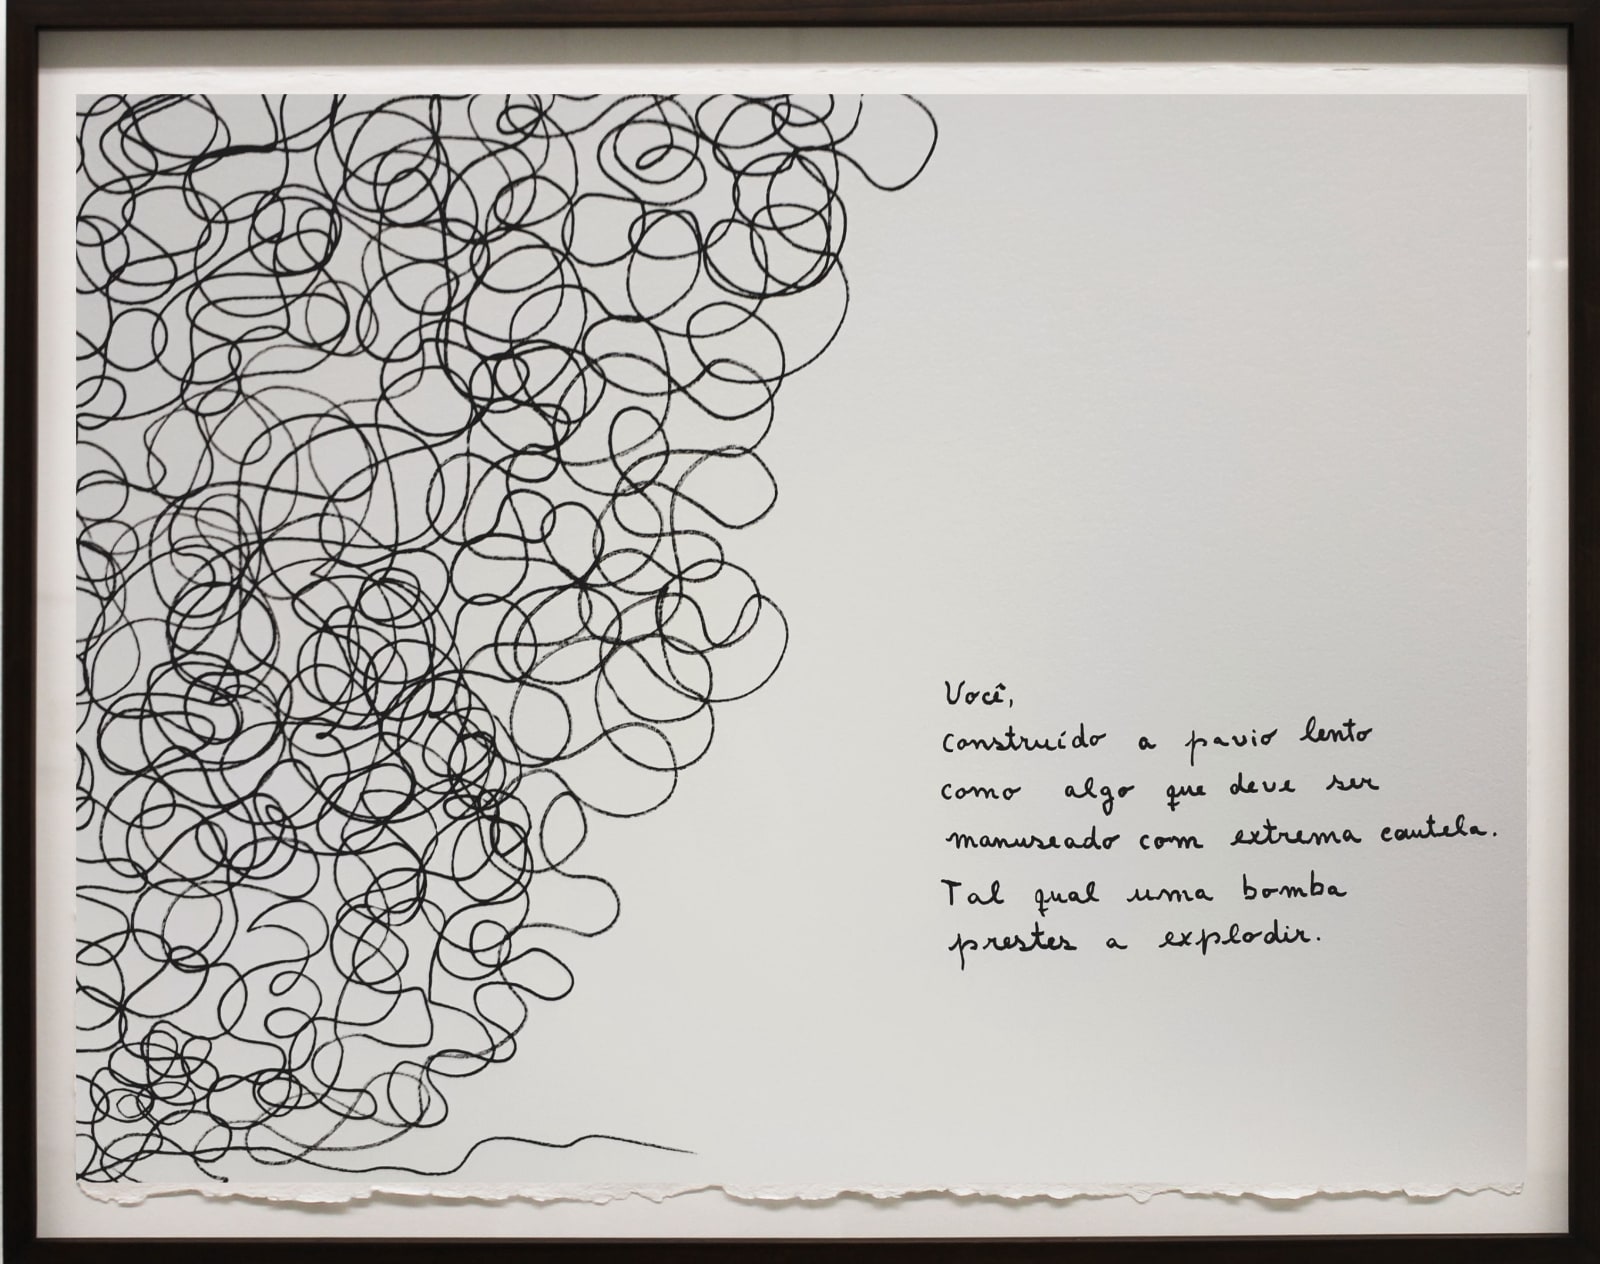 Você,
construído a pavio lento
como algo que deve ser
manuseado com extrema cautela.
Tal qual uma bomba
prestes a explodir.